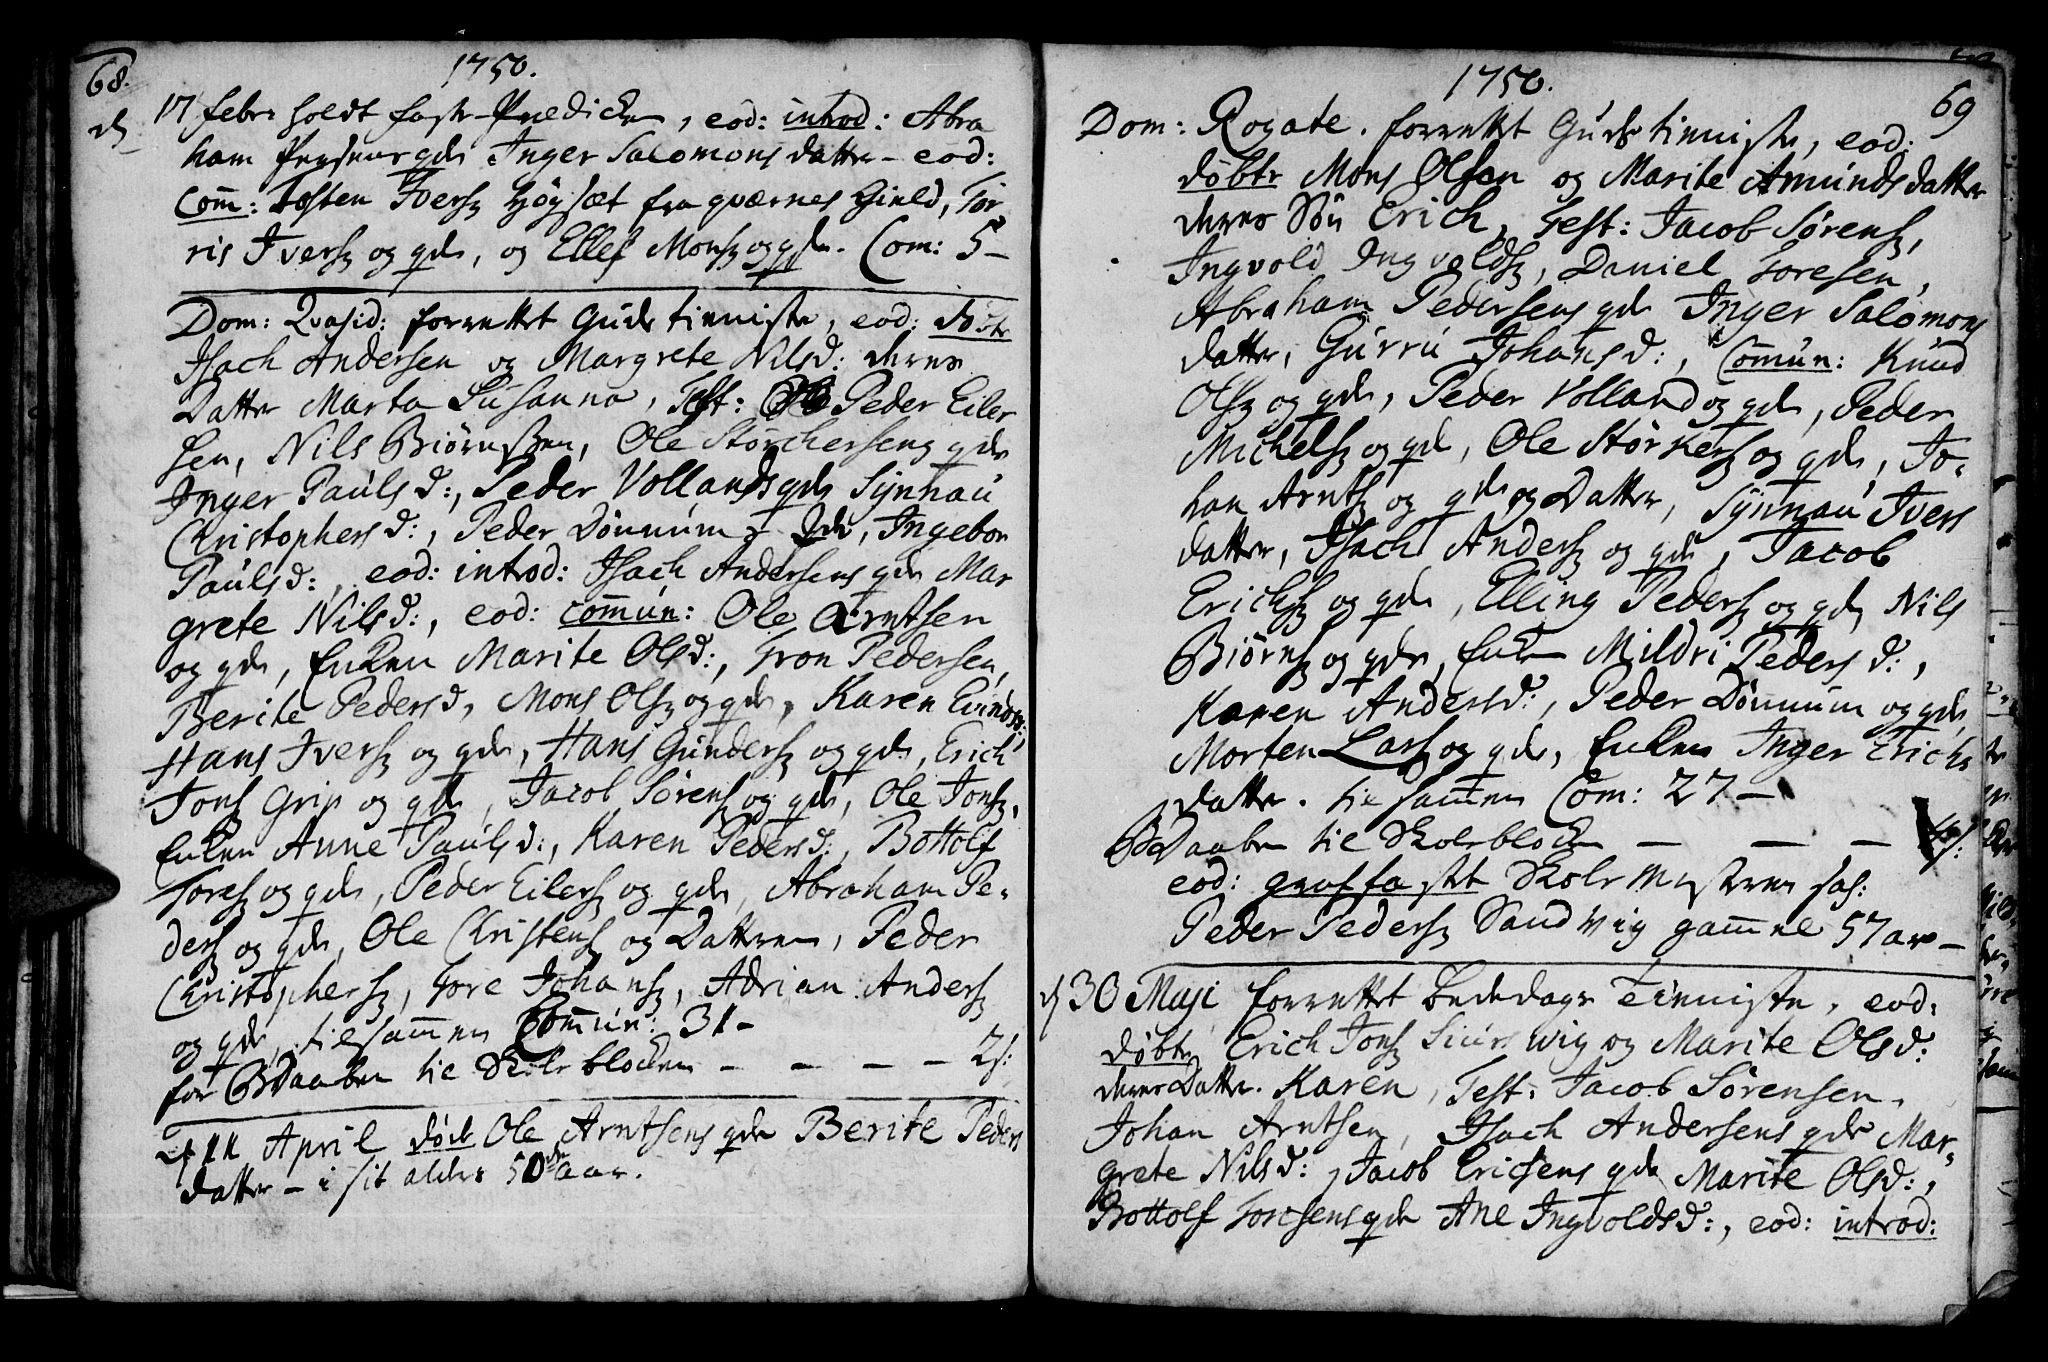 68.
1750.
d 17 febr: holdt faste Prediken, eod: introd: Abra
ham Persens qde Inger Salomons datter - eod:
Com: Tosten Ivers Høysæt fra qværnes Gield, Tor
ris Ivers og qde, og Ellef Mons og qde. Com: 5 -
Dom: Qvasid: forrettet Guds tieniste, eod: døbte
Isach Andersen og Margrete Nilsd: deres
Datter Marta Susanna, Test: Peder Eiler
sen, Nils Biørnssen, Ole Størchersens qde
Inger Paulsd:, Peder Vollands qde Synnau
Christophersd:, Peder Dønnum, Ingebor
Paulsd:, eod: introd: Isach Andersens qde Mar
grete Nilsd:, eod: commun: Ole Arntsen
og qde, Enken Marite Olsd:, Tron Pedersen,
Berite Pedersd, Mons Ols og qde, Karen Eivindsd:,
Hans Ivers og qde, Hans Gunders og qde, Erich
Jons Grip og qde, Jacob Sørens og qde, Ole Jons,
Enken Anne Paulsd:, Karen Pedersd:, Bottolf
Tores og qde, Peder Eilers og qde, Abraham Pe-
ders og qde, Ole Christens og Datteren, Peder
Christophers, Tore Johans, Adrian Anders
og qde, tilsammen Commun: 31 -
for Daaben til Skole blocken - - - - 2s:
d 11 April døde Ole Arntsens qde Berite Peders
datter - i sit alder 50de aar.
69
1750.
Dom: Rogate. forrettet Guds tieniste, eod:
døbte Mons Olsen og Marite Amunds datter
deres Søn Erich, Test: Jacob Sørens,
Ingvold Ingvolds, Daniel Toresen,
Abraham Pedersens qde Inger Salomons
datter, Gurru Johansd:, Comun: Knud
Ols og qde, Peder Volland og qde, Peder
Michels og qde, Ole Størkers og qde, Jo-
han Arnts og qde og Datter, Synnau Ivers
datter, Isach Anders og qde, Jacob
Erichs og qde, Elling Peders og qde, Nils
Biørns og qde, Enken Mildri Pedersd:,
Karen Andersd:, Peder Dønnum og qde,
Morten Lars og qde, Enken Inger Erichs
datter. tilsammen Com: 27 -
Daaben til Skole blocken - - -
eod: graffæstet Skole Mesteren sal:
Peder Peders Sandwig gammel 57 aar -
d 30 Maji forrettet Bededags Tieniste, eod:
døbte Erich Jons wig og Marite Olsd:
deres Datter. Karen, Test: Jacob Sørensen,
Johan Arntsen, Isach Andersens qde Mar-
grete Nilsd:, Jacob Ericsens qde Marite Olsd:,
Bottolf Toresens qde Ane Ingvoldsd:, eod: introd: